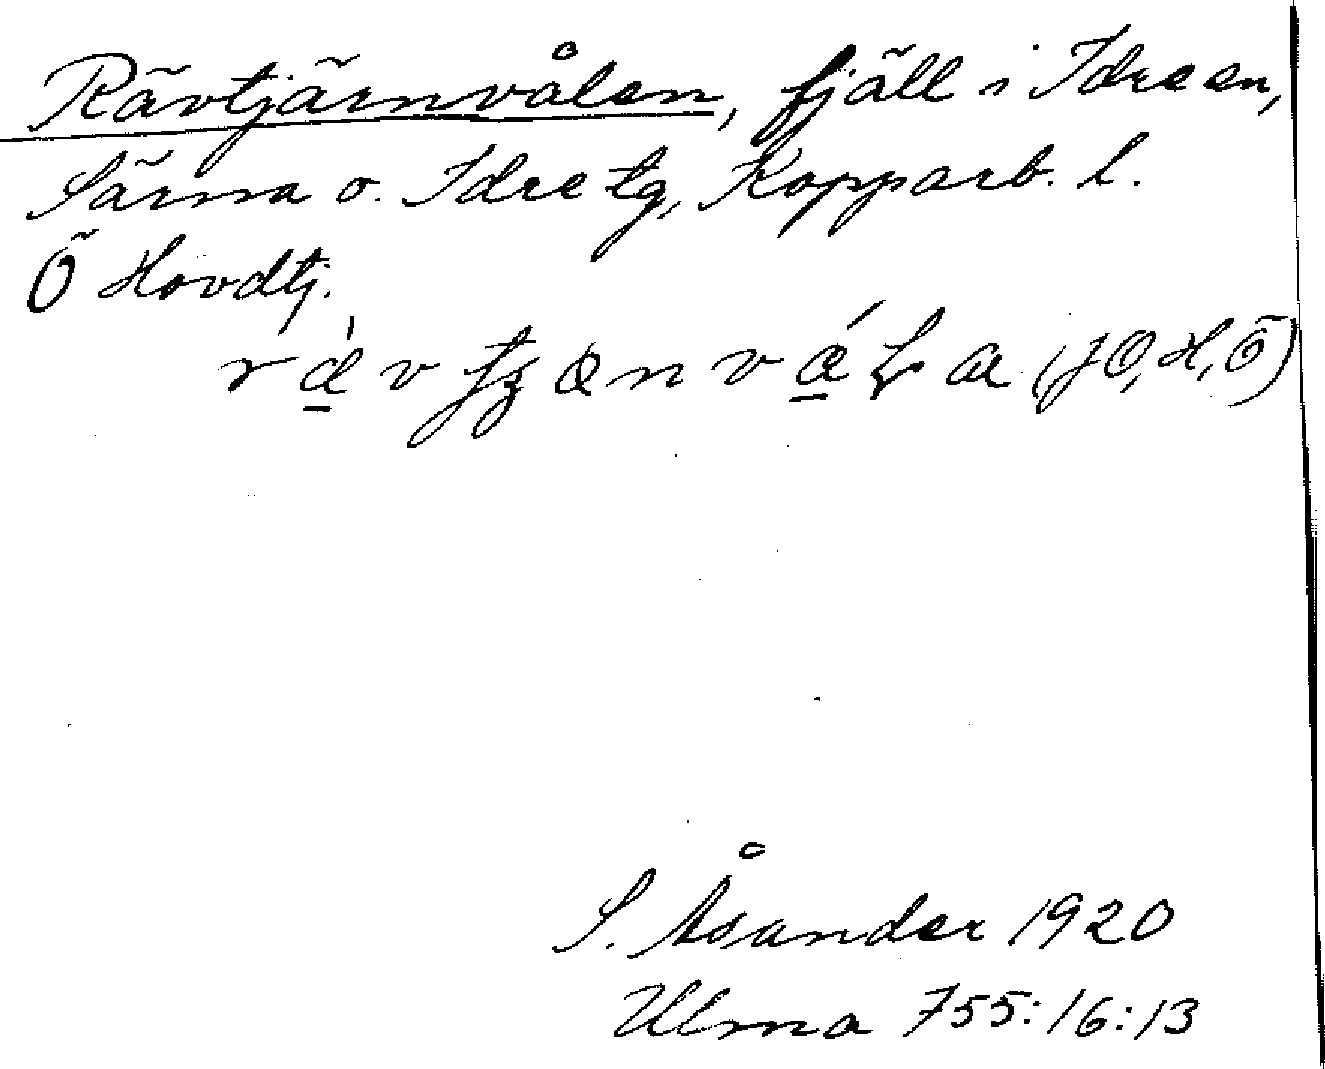 Rävtjärnvålen, fjäll i Idre sn,
Särna o. Idre tg, Kopparb. l.
Ö Hovdtj.
(JO, H, Ö)
S. Åsander 1920
Ulma 755:16:13